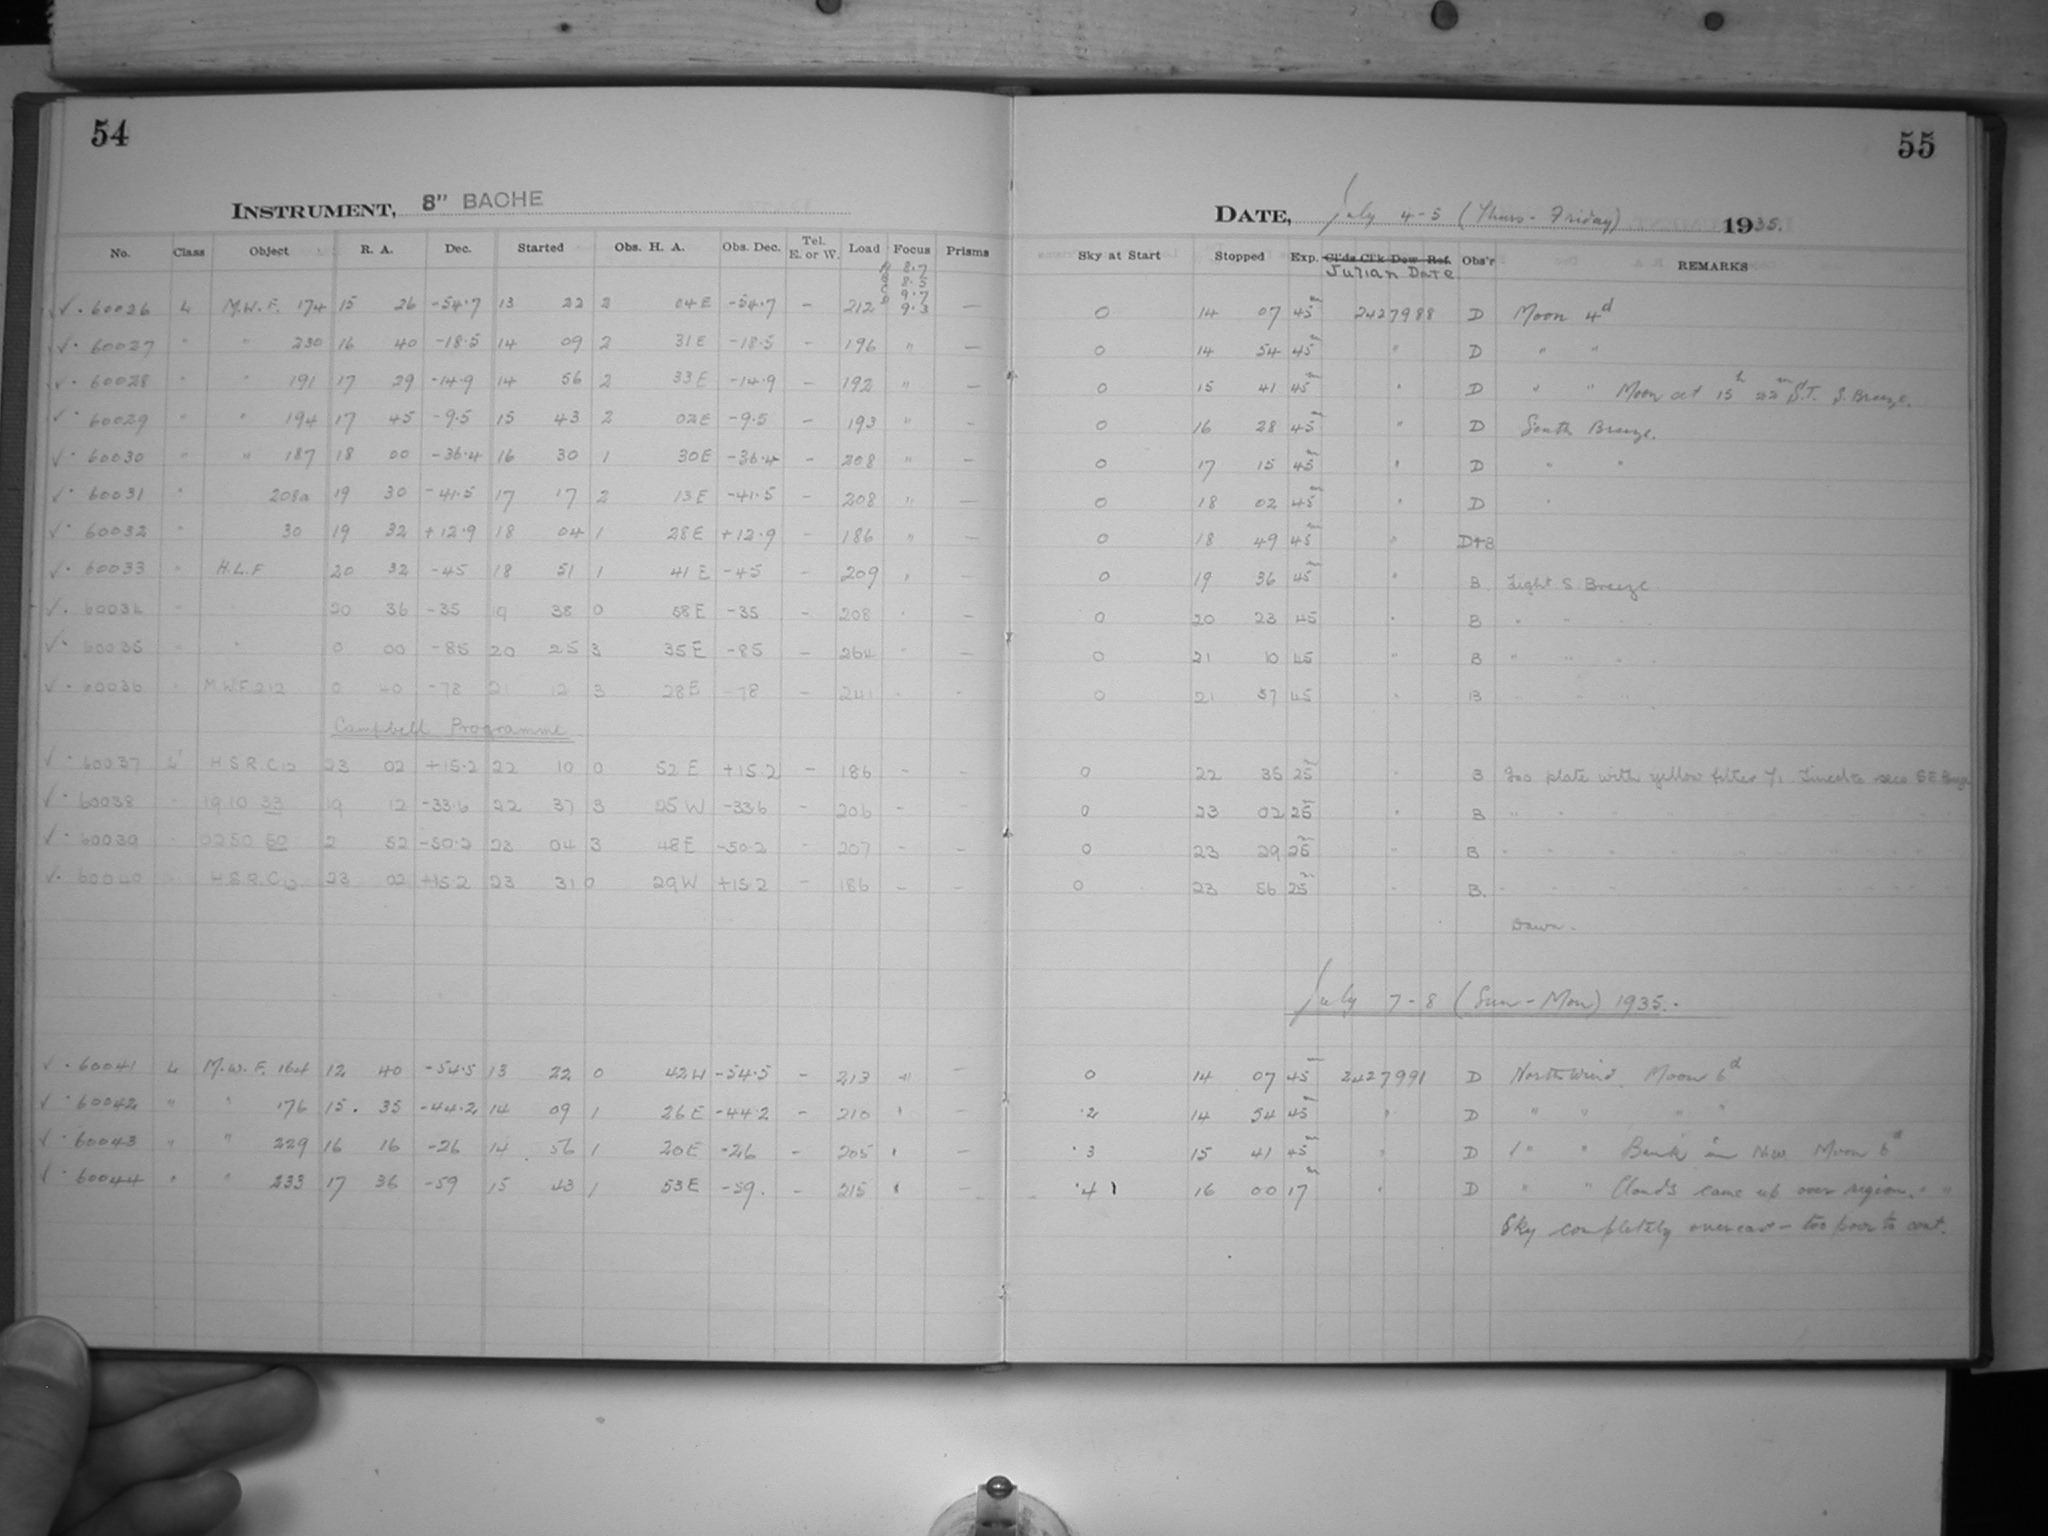 54
55
INSTRUMENT, 8" BACHE
DATE, July 4-5 (Thurs - Friday) 1935.
No. Class Object R. A. Dec. Started Obs. H. A. Obs. Dec. Tel. E. or W. Load Focus Prisms Sky at Start Stopped Exp. Cl'ds Cl'k Dew Ref. Obs'r REMARKS
Julian Date
A 8.7
B 8.5
C 9.7
D 9.3
✓ · 60026 L M.W.F. 174 15 26 -54.7 13 22 2 04 E -54.7 - 212 — 0 14 07 45m 2427988 D Moon 4d
✓ · 60027 " " 230 16 40 -18.5 14 09 2 31 E -18.5 - 196 " — 0 14 54 45m " D " "
✓ · 60028 " " 191 17 29 -14.9 14 56 2 33 E -14.9 - 192 " — 0 15 41 45m " D " " Moon at 15h 22m S.T. S. Breeze.
✓ · 60029 " " 194 17 45 -9.5 15 43 2 02 E -9.5 - 193 " - 0 16 28 45m " D South Breeze.
✓ · 60030 " " 187 18 00 -36.4 16 30 1 30 E -36.4 - 208 " — 0 17 15 45m " D " "
✓ · 60031 " 208a 19 30 -41.5 17 17 2 13 E -41.5 - 208 " — 0 18 02 45m " D "
✓ · 60032 " 30 19 32 +12.9 18 04 1 28 E +12.9 - 186 " — 0 18 49 45m " D+B
✓ · 60033 " H.L.F 20 32 -45 18 51 1 41 E -45 - 209 " - 0 19 36 45m " B. Light S. Breeze
✓ · 60034 " " 20 36 -35 19 38 0 58 E -35 - 208 " — 0 20 23 45 " B " " "
✓ · 60035 " " 0 00 -85 20 25 3 35 E -85 - 264 " — 0 21 10 45 " B " " "
✓ · 60036 " M.W.F. 212 0 40 -78 21 12 3 28 E -78 - 241 " - 0 21 57 45 " B " " "
Campbell Programme
✓ · 60037 L H.S.R.C12 23 02 +15.2 22 10 0 52 E +15.2 - 186 - - 0 22 35 25m B Iso plate with yellow filter S E Breeze
✓ · 60038 " 1910 33 19 12 -33.6 22 37 3 25 W -33.6 - 206 - - 0 23 02 25m " B " "
✓ · 60039 " 0250 50 2 52 -50.2 23 04 3 48 E -50.2 - 207 - - 0 23 29 25m " B " "
✓ · 60040 " H.S.R.C12 23 02 +15.2 23 31 0 29 W +15.2 - 186 - - 0 23 56 25m " B. " "
Dawn.
July 7-8 (Sun - Mon) 1935.
✓ · 60041 L M.W.F. 164 12 40 -54.5 13 22 0 42 W -54.5 - 213 " — 0 14 07 45m 2427991 D North Wind. Moon 6d
✓ · 60042 " " 176 15 35 -44.2 14 09 1 26 E -44.2 - 210 " — .2 14 54 45m " D " " " "
✓ · 60043 " " 229 16 16 -26 14 56 1 20 E -26 - 205 " — .3 15 41 45m " D " " Bank in N.W. Moon 6d
✓ · 60044 " " 233 17 36 -59 15 43 1 53 E -59. - 215 " — .4 16 00 17m " D " " Clouds came up over region. " "
Sky completely overcast - too poor to cont.